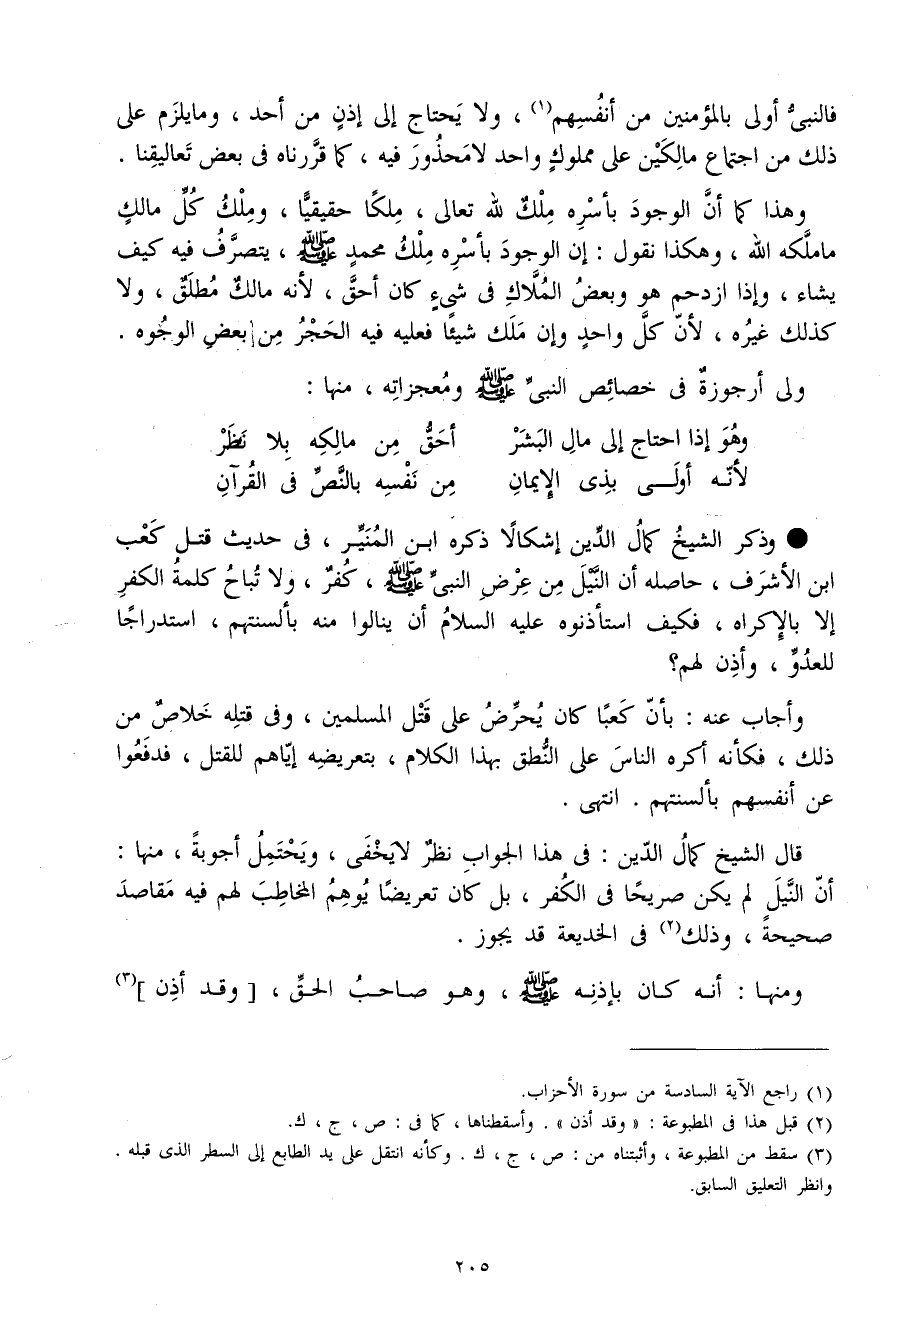 فالنبىُّ أولى بالمؤمنين من أنفُسِهم(١) ، ولا يَحتاج إلى إذنٍ من أحد ، ومايلزَم على
ذلك من اجتماع مالِكَيْن على مملوكٍ واحد لامَحذُورَ فيه ، كما قرَّرناه فى بعض تَعاليقِنا .
وهذا كما أنَّ الوجودَ بأسْرِه مِلْكٌ لله تعالى ، مِلكًا حقيقيًّا ، ومِلْكُ كُلِّ مالكٍ
ماملَّكه الله ، وهكذا نقول : إن الوجودَ بأسْرِه مِلْكُ محمدٍ ﷺ ، يتصرَّف فيه كيف
يشاء ، وإذا ازدحم هو وبعضُ المُلَّاكِ فى شىءٍ كان أحقَّ ، لأنه مالكٌ مُطلَقٌ ، ولا
كذلك غيرُه ، لأنّ كلَّ واحدٍ وإن مَلَك شيئًا فعليه فيه الحَجْرُ مِن بعضِ الوجُوه .
ولى أرجوزةٌ فى خصائِص النبىِّ ﷺ ومُعجزاتِه ، منها :
وهُوَ إذا احتاج إلى مالِ البَشَرْ أحَقُّ مِن مالِكِه بِلا نَظَرْ
لأنّه أولَى بذِى الإِيمانِ مِن نَفْسِه بالنَّصِّ فى القُرآنِ
● وذكر الشيخُ كمالُ الدِّين إشكالًا ذكره ابن المُنَيِّر ، فى حديث قتل كَعْب
ابن الأشرَف ، حاصله أن النَّيْلَ مِن عِرْضِ النبىِّ ﷺ ، كُفرٌ ، ولا تُباحُ كلمةُ الكفرِ
إلا بالإِكراه ، فكيف استأذنوه عليه السلامُ أن ينالوا منه بألسنتهم ، استدراجًا
للعدُوِّ ، وأذِن لهم؟
وأجاب عنه : بأنّ كَعبًا كان يُحرِّضُ على قَتْل المسلمين ، وفى قتلِه خَلاصٌ من
ذلك ، فكأنه أكره الناسَ على النُّطق بهذا الكلام ، بتعريضِه إيّاهم للقتل ، فدفَعُوا
عن أنفسهم بألسنتهم . انتهى .
قال الشيخ كمالُ الدّين : فى هذا الجوابِ نظرٌ لايَخْفَى ، ويَحْتَمِلُ أجوبةً ، منها :
أنّ النَّيلَ لم يكن صريحًا فى الكُفر ، بل كان تعريضًا يُوهِمُ المخاطِبَ لهم فيه مَقاصدَ
صحيحةً ، وذلك(٢) فى الخديعة قد يجوز .
ومنها : أنه كان بإذنِه ﷺ ، وهو صاحبُ الحقِّ ، [ وقد أذِن ](٣)
(١) راجع الآية السادسة من سورة الأحزاب.
(٢) قبل هذا فى المطبوعة : « وقد أذن » . وأسقطناها ، كما فى : ص ، ج ، ك.
(٣) سقط من المطبوعة ، وأثبتناه من : ص ، ج ، ك . وكأنه انتقل على يد الطابع إلى السطر الذى قبله .
وانظر التعليق السابق.
٢٠٥